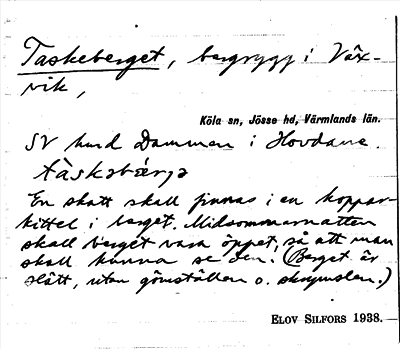 Taskeberget, bergrygg i Växvik,
Köla sn, Jösse hd, Värmlands län.
SV om Dammen i Hovdane.
En skatt skall finnas i en koppar-
kittel i berget. Midsommarnatten
skall berget vara öppet, så att man
skall kunna se den. (Berget är
slätt, utan gömställen o. skrymslen.)
ELOV SILFORS 1938.